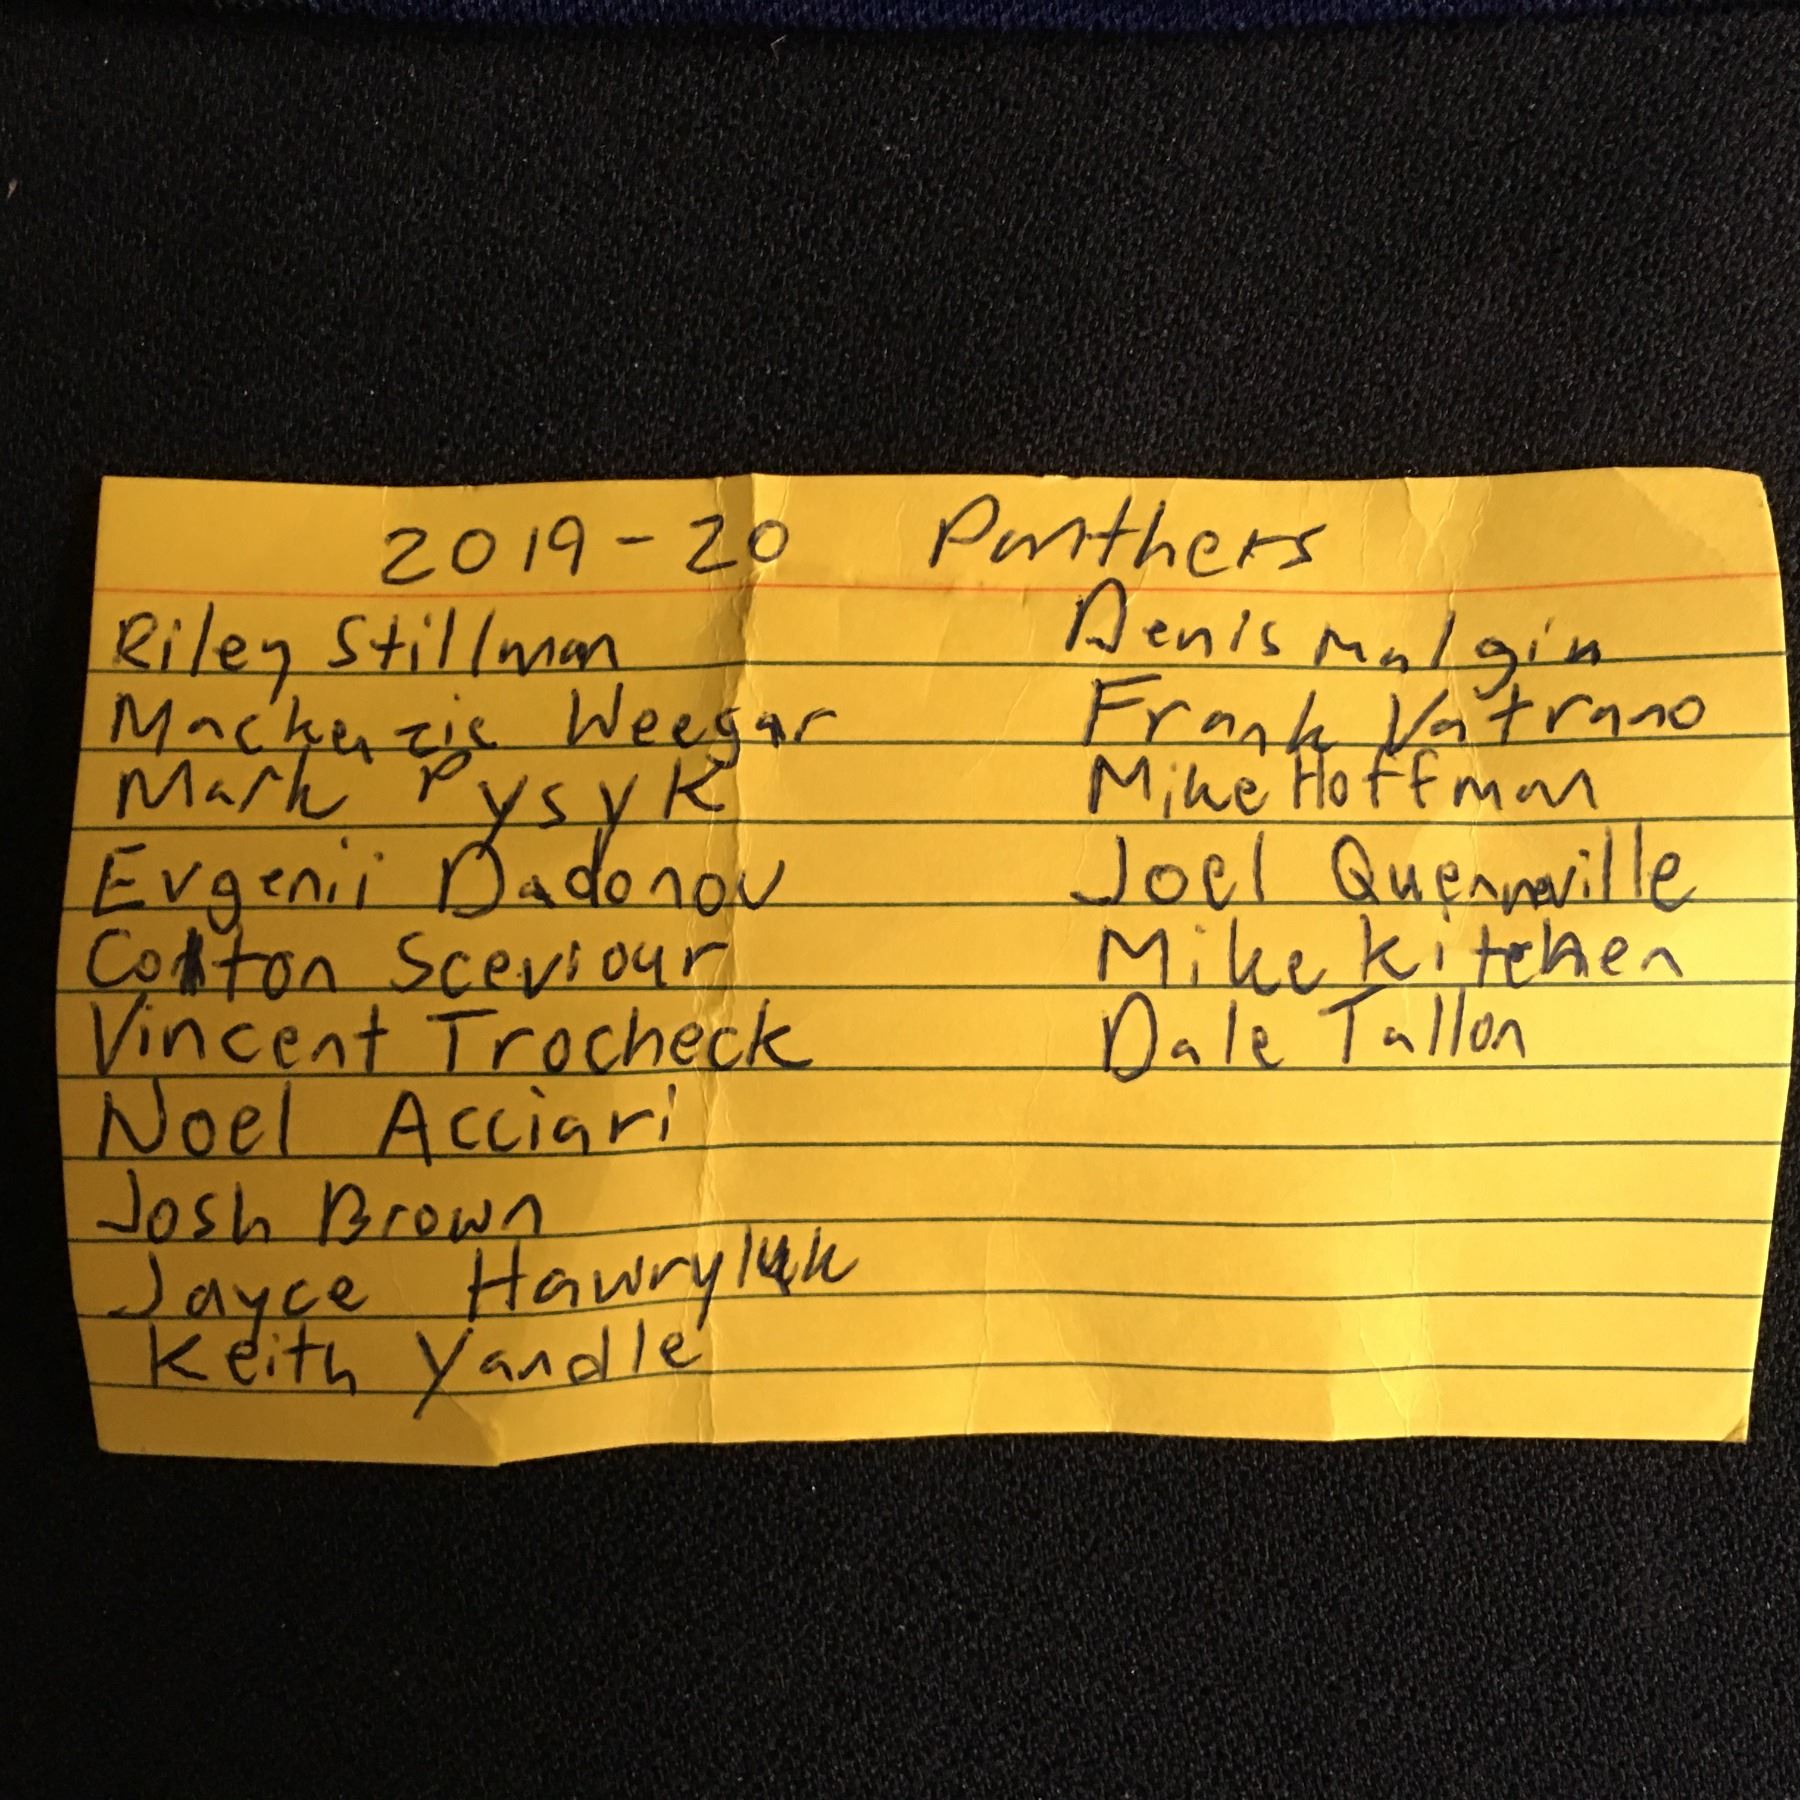 2019-20 Panthers
Riley Stillman
Mackenzie Weegar
Mark Pysyk
Evgenii Dadonov
Colton Sceviour
Vincent Trocheck
Noel Acciari
Josh Brown
Jayce Hawryluk
Keith Yandle
Denis Malgin
Frank Vatrano
Mike Hoffman
Joel Quenneville
Mike Kitchen
Dale Tallon